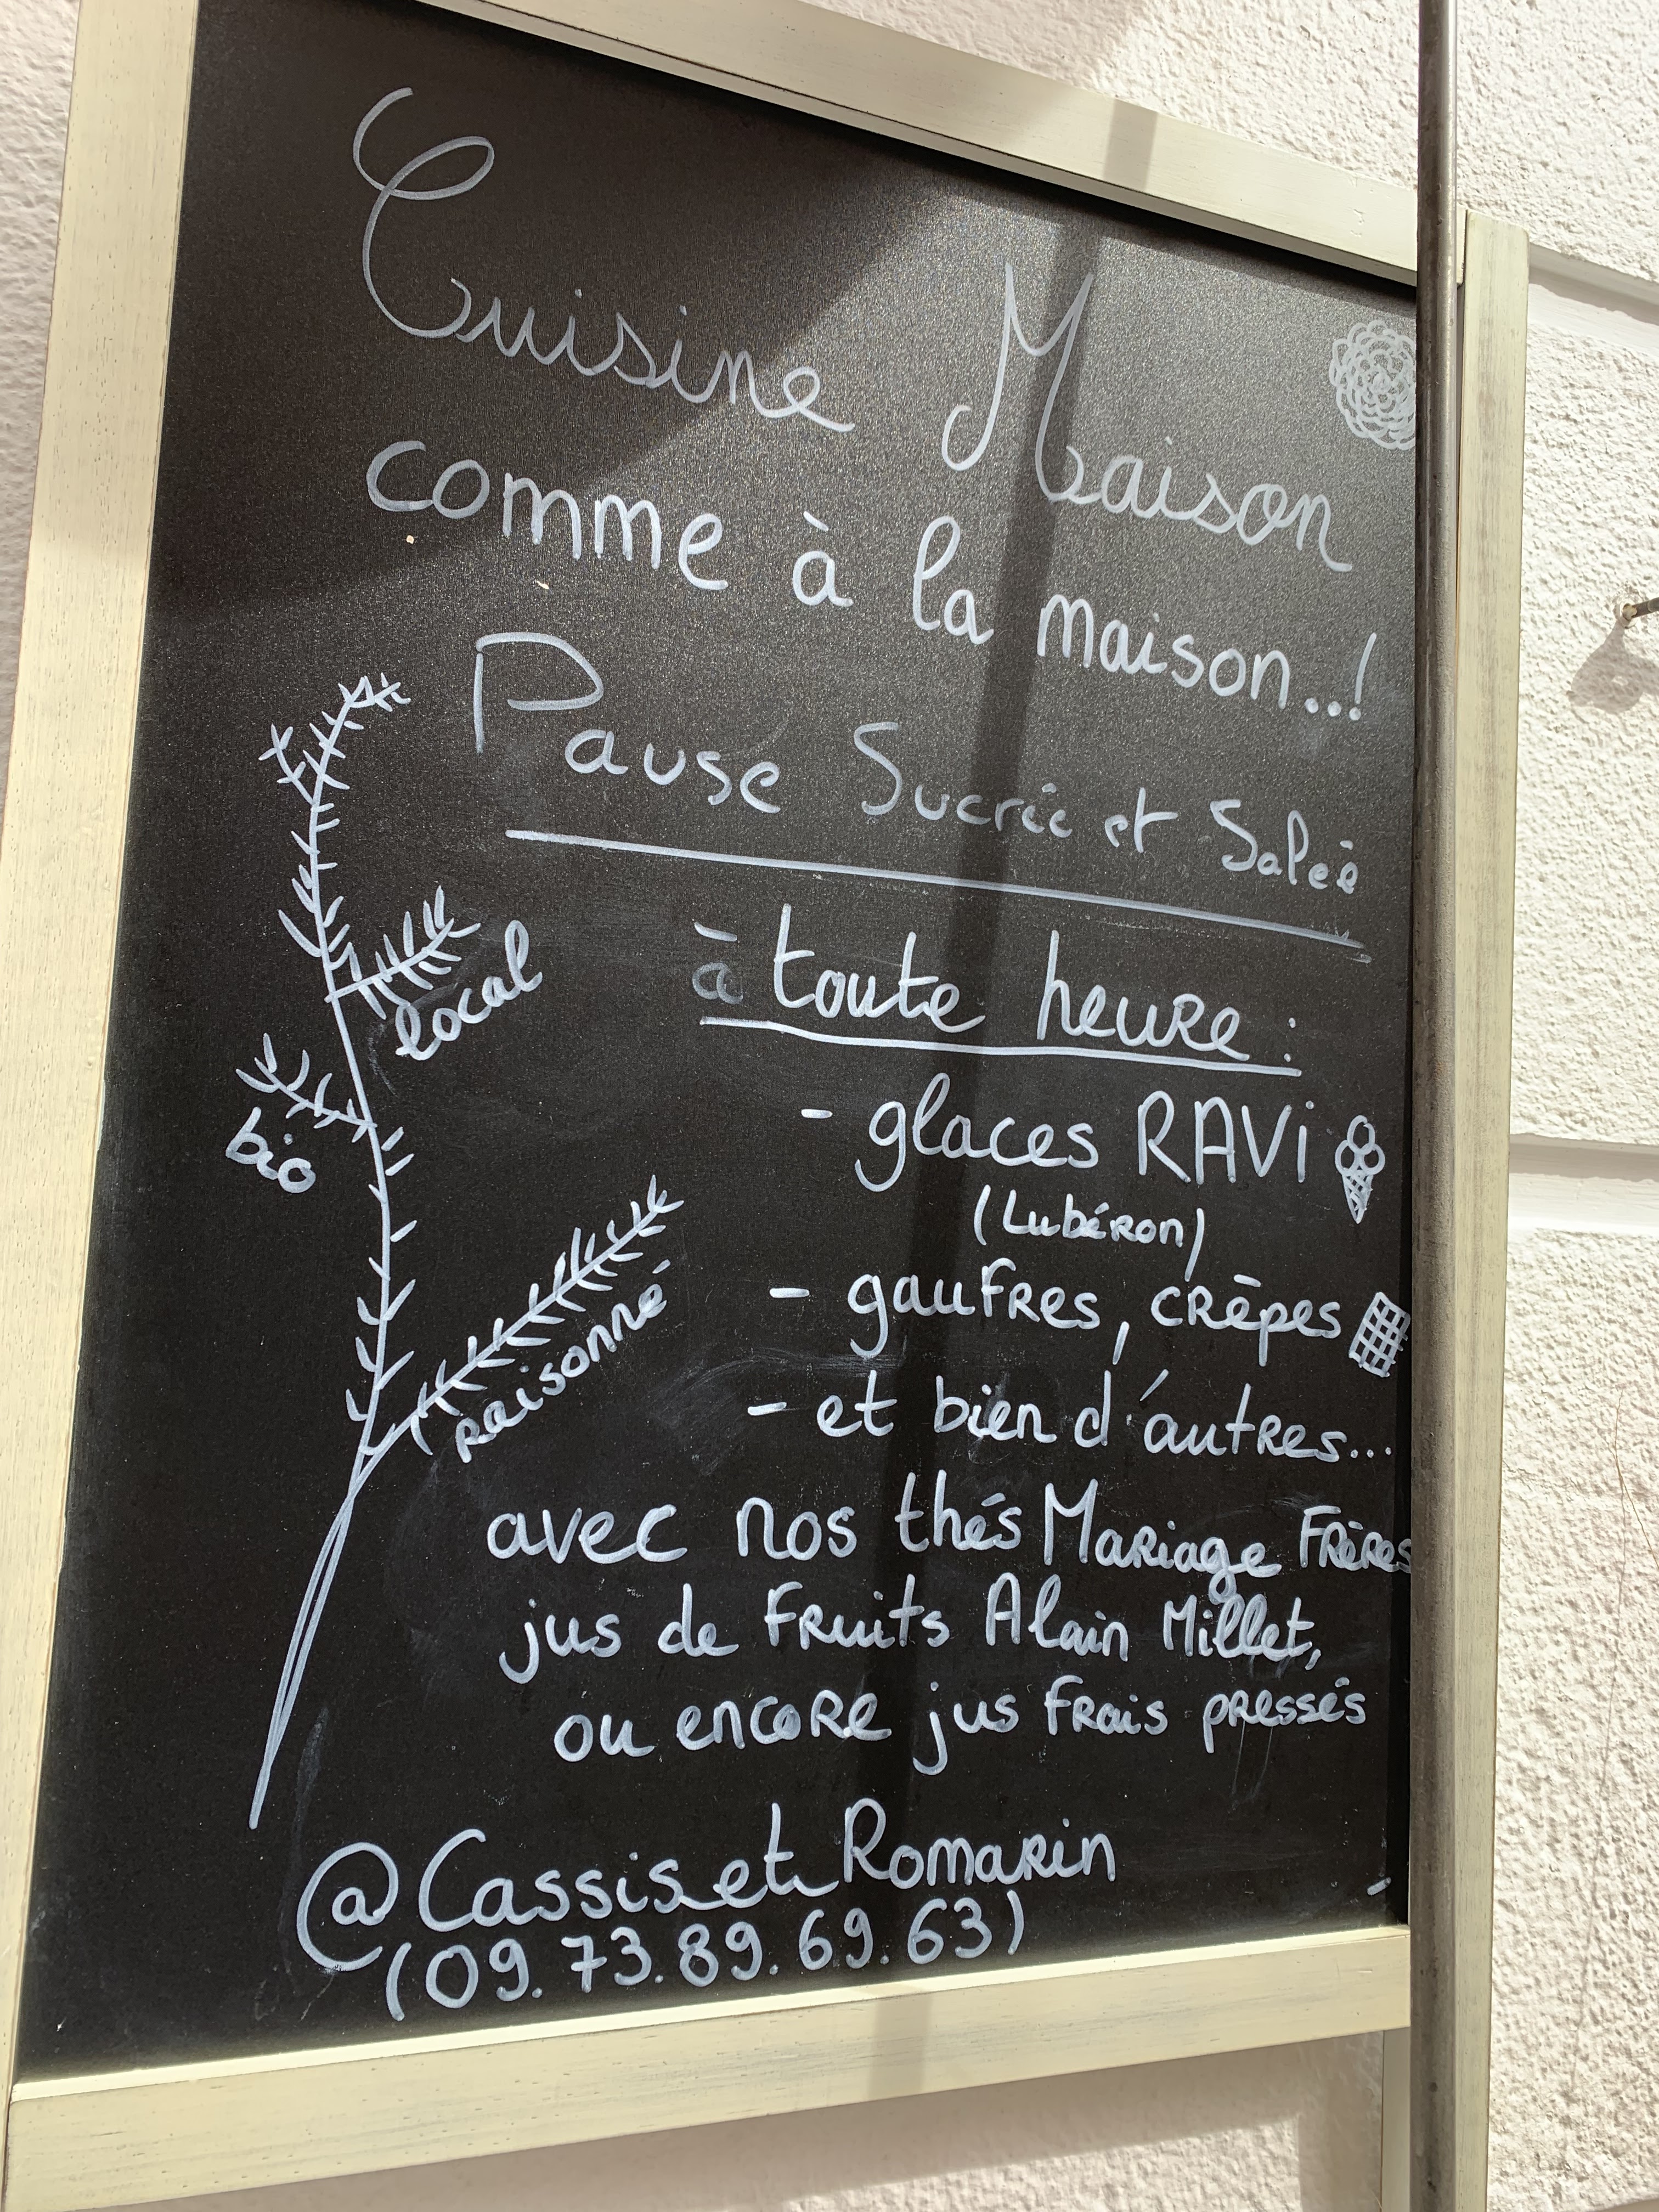 Cuisine Maison
comme à la maison..!
Pause Sucrée et Salée
à toute heure :
local
- glaces RAVi
bio
(Lubéron)
- gaufres, crêpes
raisonné
- et bien d'autres...
avec nos thés Mariage Frères
jus de fruits Alain Millet,
ou encore jus frais pressés
@Cassis_et_Romarin
(09.73.89.69.63)